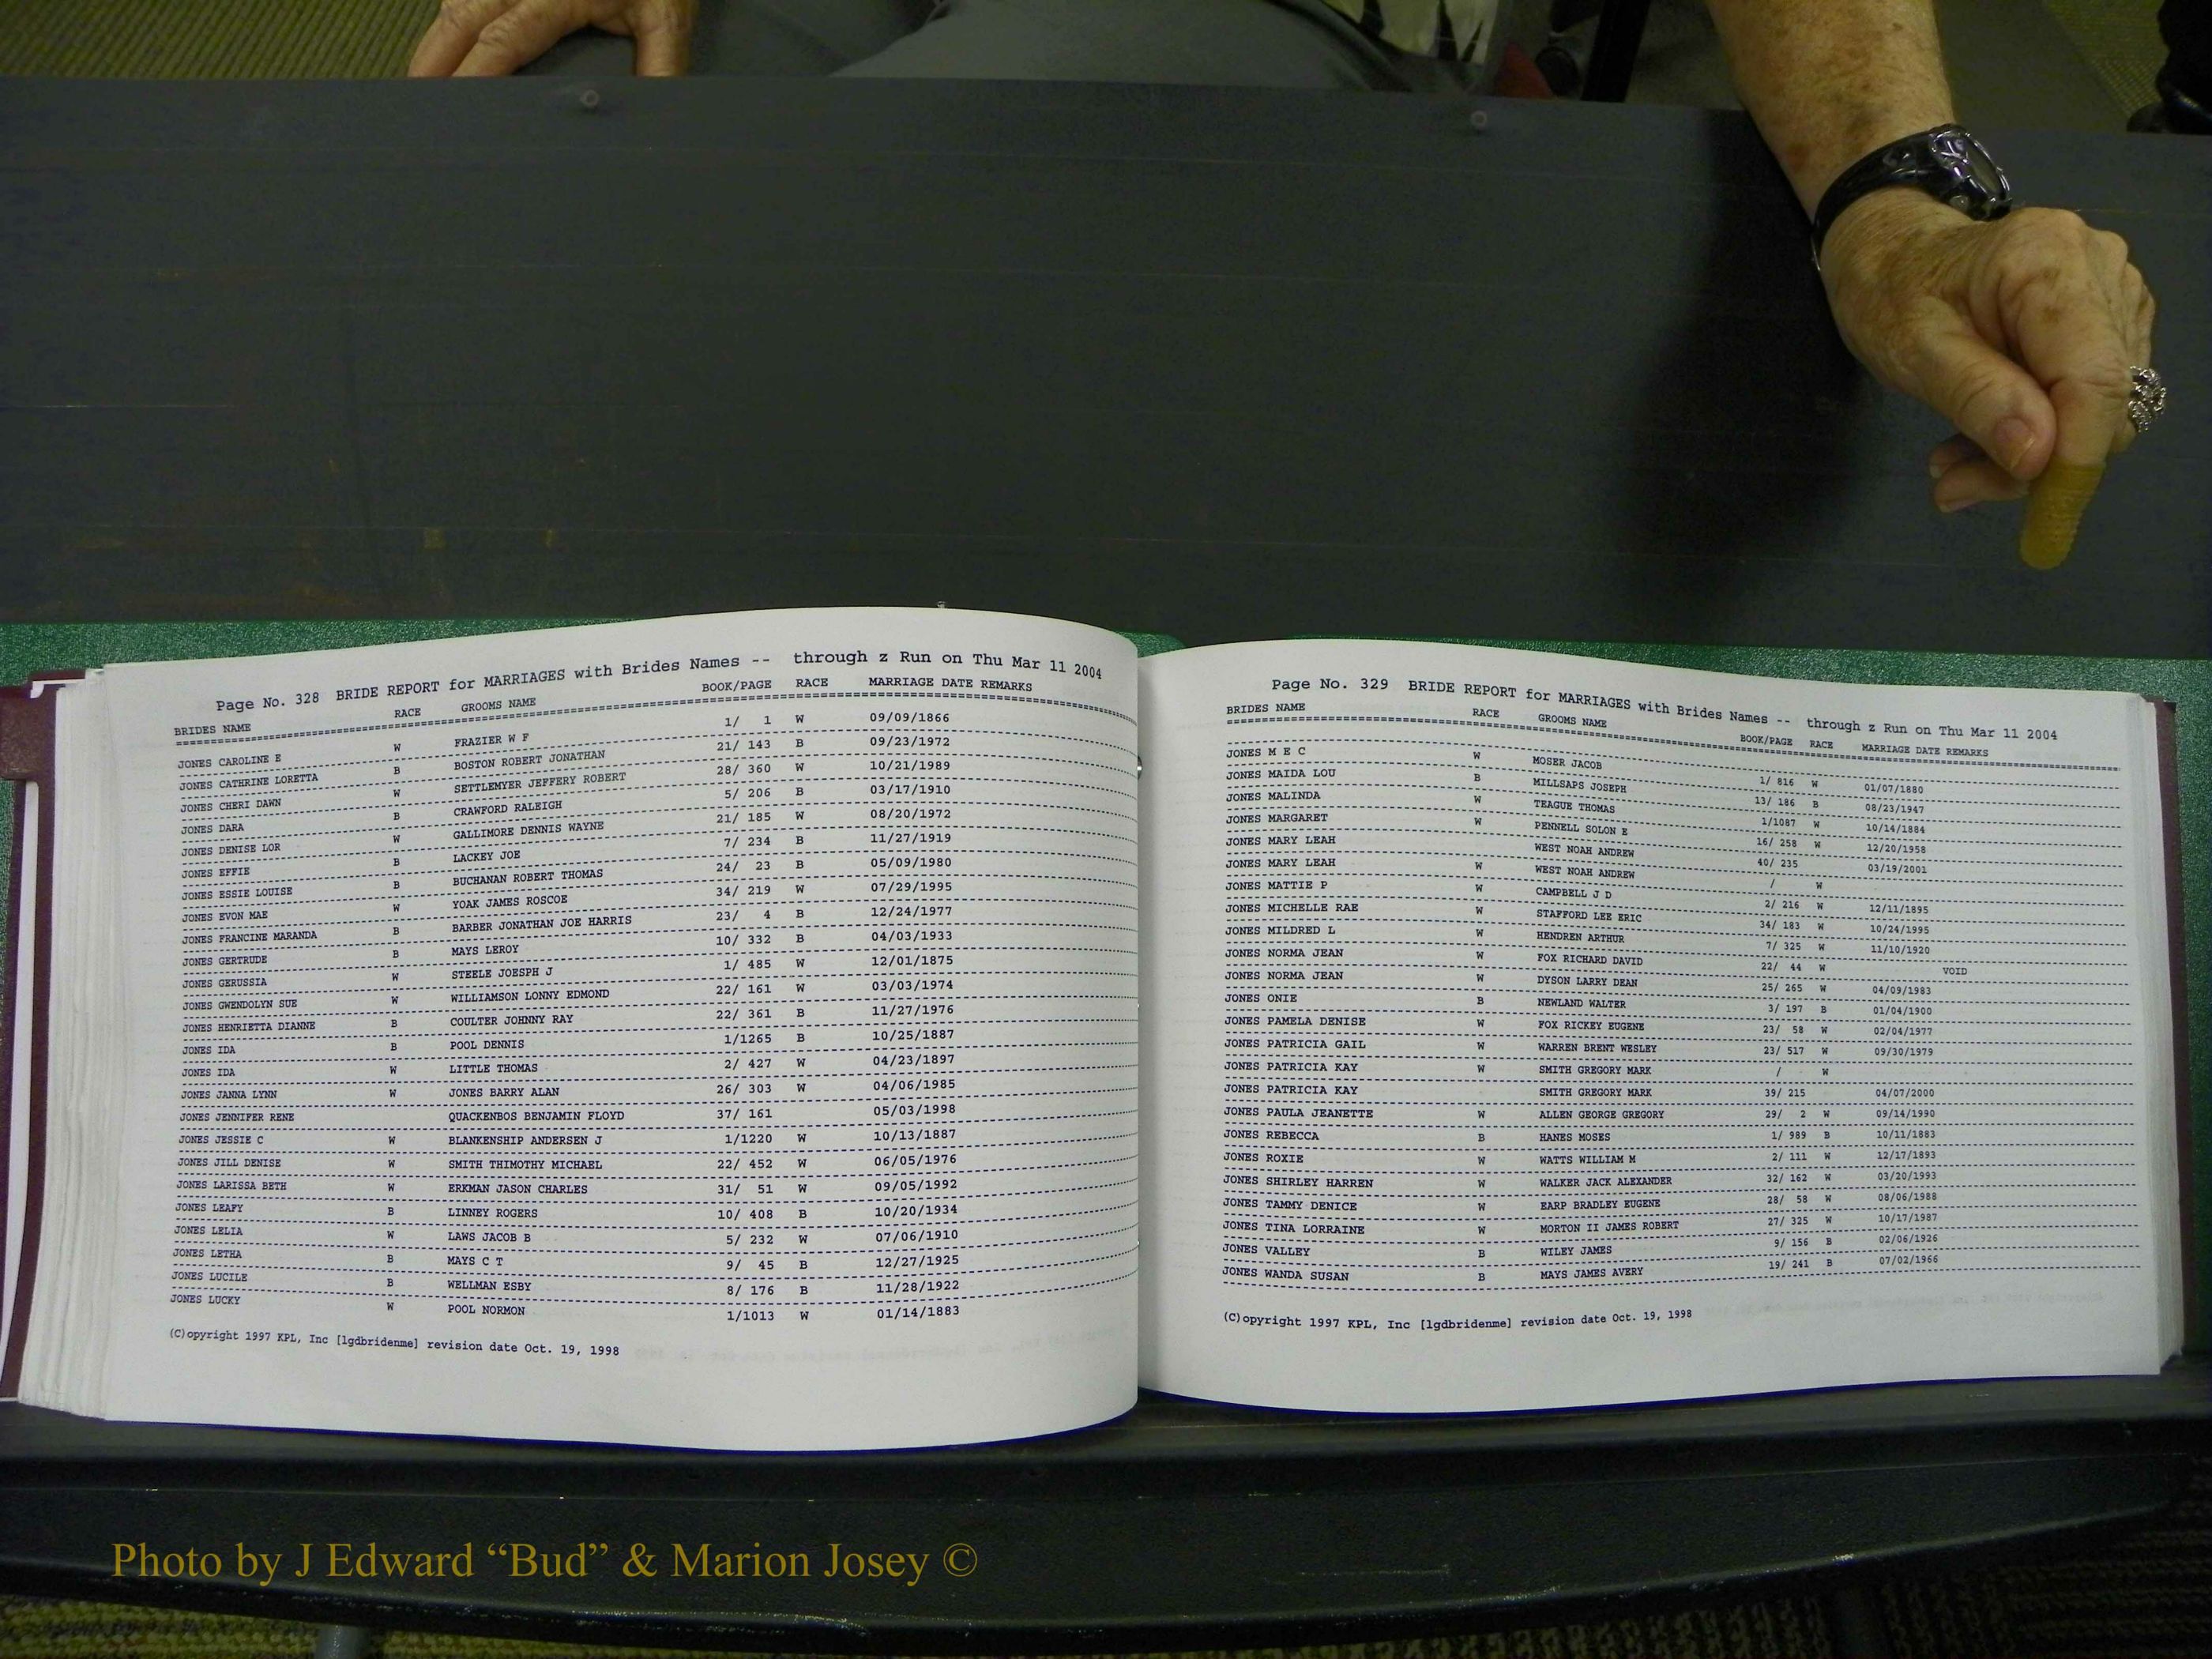 Page No. 328 BRIDE REPORT for MARRIAGES with Brides Names -- through z Run on Thu Mar 11 2004
BRIDES NAME RACE GROOMS NAME BOOK/PAGE RACE MARRIAGE DATE REMARKS
JONES CAROLINE E W FRAZIER W F 1/ 1 W 09/09/1866
JONES CATHRINE LORETTA B BOSTON ROBERT JONATHAN 21/ 143 B 09/23/1972
JONES CHERI DAWN W SETTLEMYER JEFFERY ROBERT 28/ 360 W 10/21/1989
JONES DARA B CRAWFORD RALEIGH 5/ 206 B 03/17/1910
JONES DENISE LOR W GALLIMORE DENNIS WAYNE 21/ 185 W 08/20/1972
JONES EFFIE B LACKEY JOE 7/ 234 B 11/27/1919
JONES ESSIE LOUISE B BUCHANAN ROBERT THOMAS 24/ 23 B 05/09/1980
JONES EVON MAE W YOAK JAMES ROSCOE 34/ 219 W 07/29/1995
JONES FRANCINE MARANDA B BARBER JONATHAN JOE HARRIS 23/ 4 B 12/24/1977
JONES GERTRUDE B MAYS LEROY 10/ 332 B 04/03/1933
JONES GERUSSIA W STEELE JOESPH J 1/ 485 W 12/01/1875
JONES GWENDOLYN SUE W WILLIAMSON LONNY EDMOND 22/ 161 W 03/03/1974
JONES HENRIETTA DIANNE B COULTER JOHNNY RAY 22/ 361 B 11/27/1976
JONES IDA B POOL DENNIS 1/1265 B 10/25/1887
JONES IDA W LITTLE THOMAS 2/ 427 W 04/23/1897
JONES JANNA LYNN W JONES BARRY ALAN 26/ 303 W 04/06/1985
JONES JENNIFER RENE QUACKENBOS BENJAMIN FLOYD 37/ 161 05/03/1998
JONES JESSIE C W BLANKENSHIP ANDERSEN J 1/1220 W 10/13/1887
JONES JILL DENISE W SMITH THIMOTHY MICHAEL 22/ 452 W 06/05/1976
JONES LARISSA BETH W ERKMAN JASON CHARLES 31/ 51 W 09/05/1992
JONES LEAFY B LINNEY ROGERS 10/ 408 B 10/20/1934
JONES LELIA W LAWS JACOB B 5/ 232 W 07/06/1910
JONES LETHA B MAYS C T 9/ 45 B 12/27/1925
JONES LUCILE B WELLMAN ESBY 8/ 176 B 11/28/1922
JONES LUCKY W POOL NORMON 1/1013 W 01/14/1883
(C)opyright 1997 KPL, Inc [lgdbridenme] revision date Oct. 19, 1998
Page No. 329 BRIDE REPORT for MARRIAGES with Brides Names -- through z Run on Thu Mar 11 2004
BRIDES NAME RACE GROOMS NAME BOOK/PAGE RACE MARRIAGE DATE REMARKS
JONES M E C W MOSER JACOB 1/ 816 W 01/07/1880
JONES MAIDA LOU B MILLSAPS JOSEPH 13/ 186 B 08/23/1947
JONES MALINDA W TEAGUE THOMAS 1/1087 W 10/14/1884
JONES MARGARET W PENNELL SOLON E 16/ 258 W 12/20/1958
JONES MARY LEAH WEST NOAH ANDREW 40/ 235 03/19/2001
JONES MARY LEAH W WEST NOAH ANDREW / W
JONES MATTIE P W CAMPBELL J D 2/ 216 W 12/11/1895
JONES MICHELLE RAE W STAFFORD LEE ERIC 34/ 183 W 10/24/1995
JONES MILDRED L W HENDREN ARTHUR 7/ 325 W 11/10/1920
JONES NORMA JEAN W FOX RICHARD DAVID 22/ 44 W VOID
JONES NORMA JEAN W DYSON LARRY DEAN 25/ 265 W 04/09/1983
JONES ONIE B NEWLAND WALTER 3/ 197 B 01/04/1900
JONES PAMELA DENISE W FOX RICKEY EUGENE 23/ 58 W 02/04/1977
JONES PATRICIA GAIL W WARREN BRENT WESLEY 23/ 517 W 09/30/1979
JONES PATRICIA KAY W SMITH GREGORY MARK / W
JONES PATRICIA KAY SMITH GREGORY MARK 39/ 215 04/07/2000
JONES PAULA JEANETTE W ALLEN GEORGE GREGORY 29/ 2 W 09/14/1990
JONES REBECCA B HANES MOSES 1/ 989 B 10/11/1883
JONES ROXIE W WATTS WILLIAM M 2/ 111 W 12/17/1893
JONES SHIRLEY HARREN W WALKER JACK ALEXANDER 32/ 162 W 03/20/1993
JONES TAMMY DENICE W EARP BRADLEY EUGENE 28/ 58 W 08/06/1988
JONES TINA LORRAINE W MORTON II JAMES ROBERT 27/ 325 W 10/17/1987
JONES VALLEY B WILEY JAMES 9/ 156 B 02/06/1926
JONES WANDA SUSAN B MAYS JAMES AVERY 19/ 241 B 07/02/1966
(C)opyright 1997 KPL, Inc [lgdbridenme] revision date Oct. 19, 1998
Photo by J Edward “Bud” & Marion Josey ©